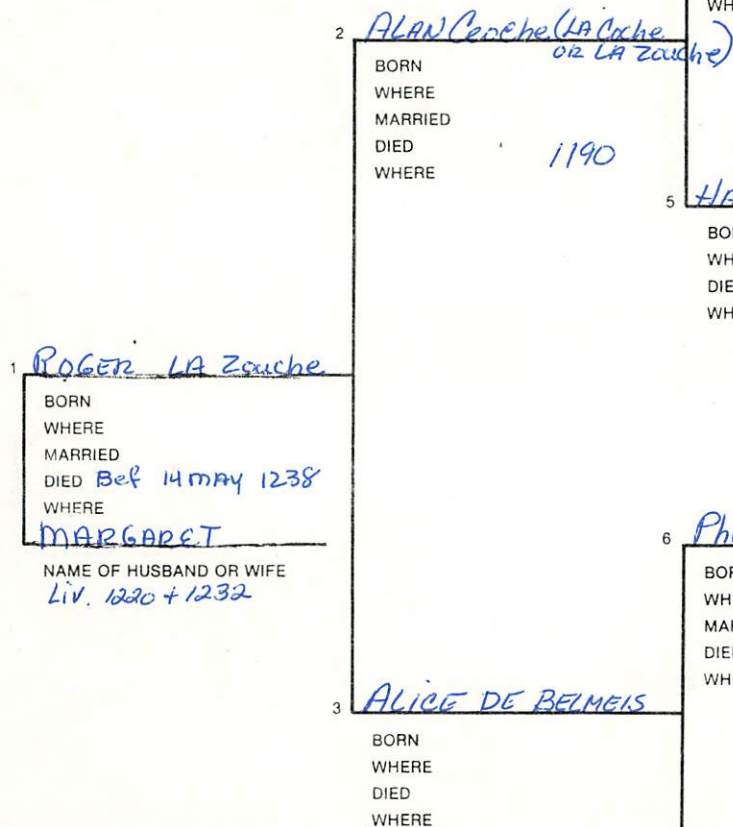 WH
2 ALAN Ceoche (LA Coche
OR LA Zouche)
BORN
WHERE
MARRIED
DIED 1190
WHERE
5 HA
BO
WH
DIE
WH
1 ROGER LA Zouche
BORN
WHERE
MARRIED
DIED Bef 14 MAY 1238
WHERE
MARGARET
NAME OF HUSBAND OR WIFE
Liv. 1220 + 1232
6 Ph
BOR
WH
MAR
DIE
WH
3 ALICE DE BELMEIS
BORN
WHERE
DIED
WHERE